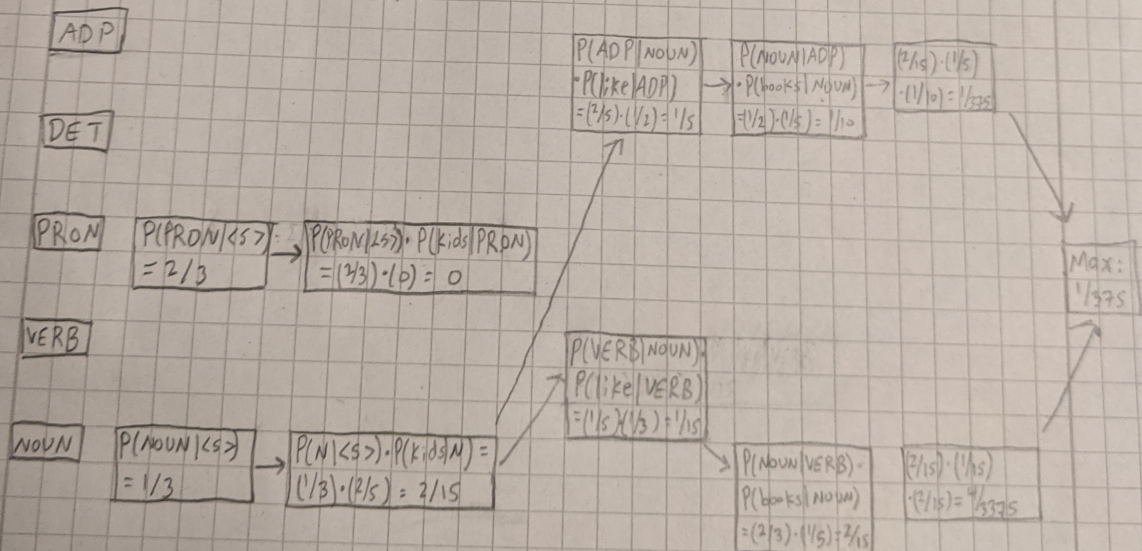 ADP
DET
PRON
VERB
NOUN
P(PRON|<s>)
= 2/3
P(PRON|<s>)·P(kids|PRON)
=(2/3)·(0) = 0
P(NOUN|<s>)
= 1/3
P(N|<s>)·P(kids|N) =
(1/3)·(2/5) = 2/15
P(ADP|NOUN)
·P(like|ADP)
=(2/5)·(1/2) = 1/5
P(NOUN|ADP)
·P(books|NOUN)
=(1/2)·(1/5) = 1/10
(2/15)·(1/5)
·(1/10) = 1/375
P(VERB|NOUN)·
P(like|VERB)
=(1/5)(1/3) = 1/15
P(NOUN|VERB)·
P(books|NOUN)
=(2/3)·(1/5) = 2/15
(2/15)·(1/15)
·(2/15) = 4/3375
Max:
1/375